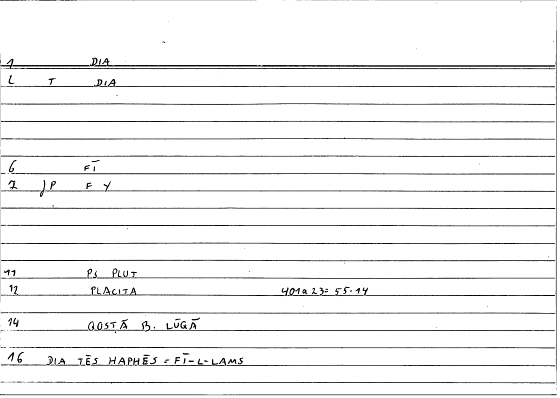 1 DIA
L T DIA
6 FĪ
7 JP F Y
11 PS PLUT
12 PLACITA 401a23= 55.14
14 QOSṬĀ B. LŪQĀ
16 DIA TĒS HAPHĒS = FĪ-L-LAMS